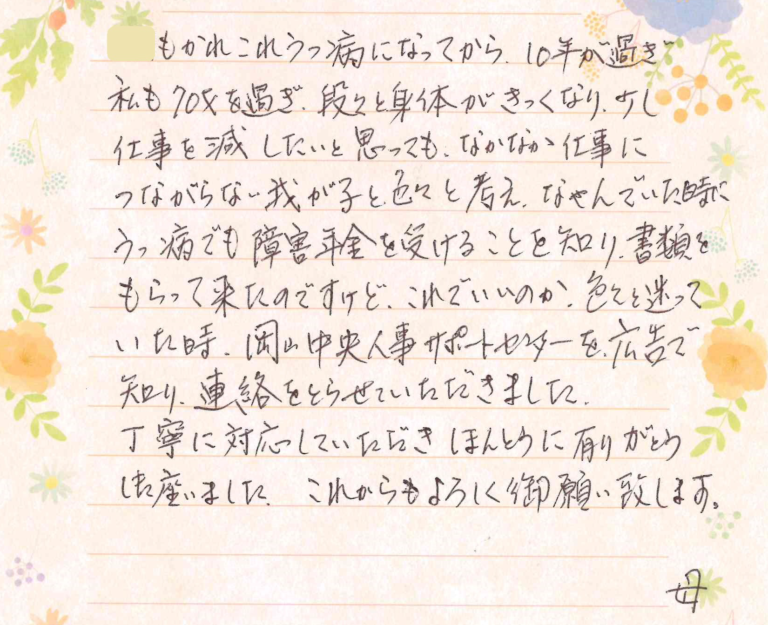 もかれこれうつ病になってから、10年が過ぎ
私も70才を過ぎ、段々と身体がきつくなり、少し
仕事を減したいと思っても、なかなか仕事に
つながらない我が子と、色々と考え、なやんでいた時に
うつ病でも障害年金を受けることを知り、書類を
もらって来たのですけど、これでいいのか、色々と迷って
いた時、岡山中央人事サポートセンターを、広告で
知り、連絡をとらせていただきました。
丁寧に対応していただきほんとうに有りがとう
ご座いました。これからもよろしく御願い致します。
母